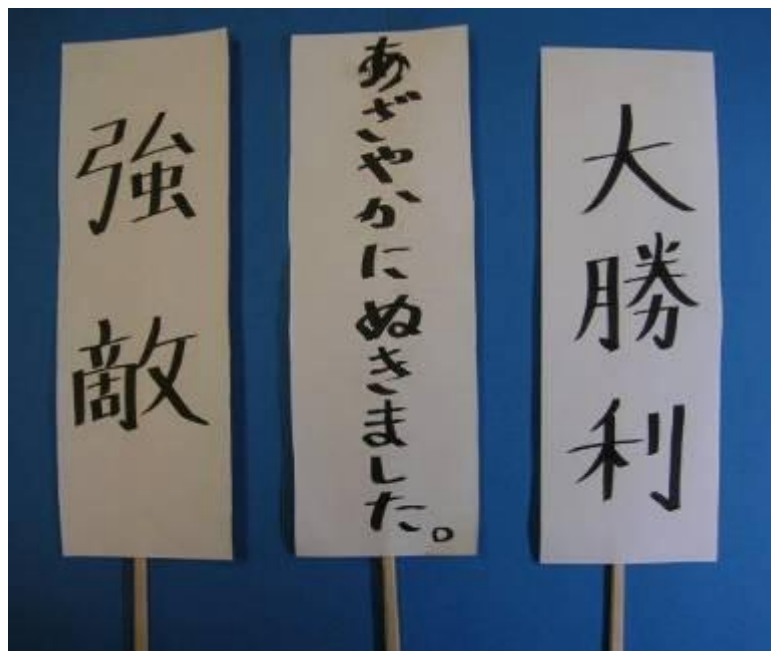 強敵
あざやかにぬきました。
大勝利